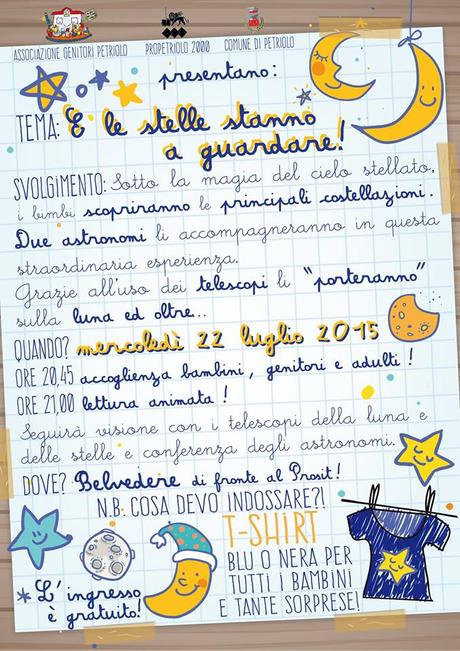 ASSOCIAZIONE GENITORI PETRIOLO PROPETRIOLO 2000 COMUNE DI PETRIOLO
presentano:
TEMA: E le stelle stanno
a guardare!
SVOLGIMENTO: Sotto la magia del cielo stellato,
i bimbi scopriranno le principali costellazioni.
Due astronomi li accompagneranno in questa
straordinaria esperienza.
Grazie all'uso dei telescopi li "porteranno"
sulla luna ed oltre...
QUANDO? mercoledì 22 luglio 2015
ORE 20,45 accoglienza bambini, genitori e adulti!
ORE 21,00 lettura animata!
Seguirà visione con i telescopi della luna e
delle stelle e conferenza degli astronomi.
DOVE? Belvedere di fronte al Prosit!
N.B. COSA DEVO INDOSSARE?!
T-SHIRT
BLU O NERA PER
TUTTI I BAMBINI
E TANTE SORPRESE!
L'ingresso
è gratuito!